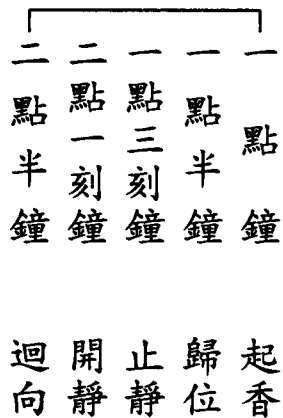 一點鐘 起香
一點半鐘 歸位
一點三刻鐘 止靜
二點一刻鐘 開靜
二點半鐘 迴向